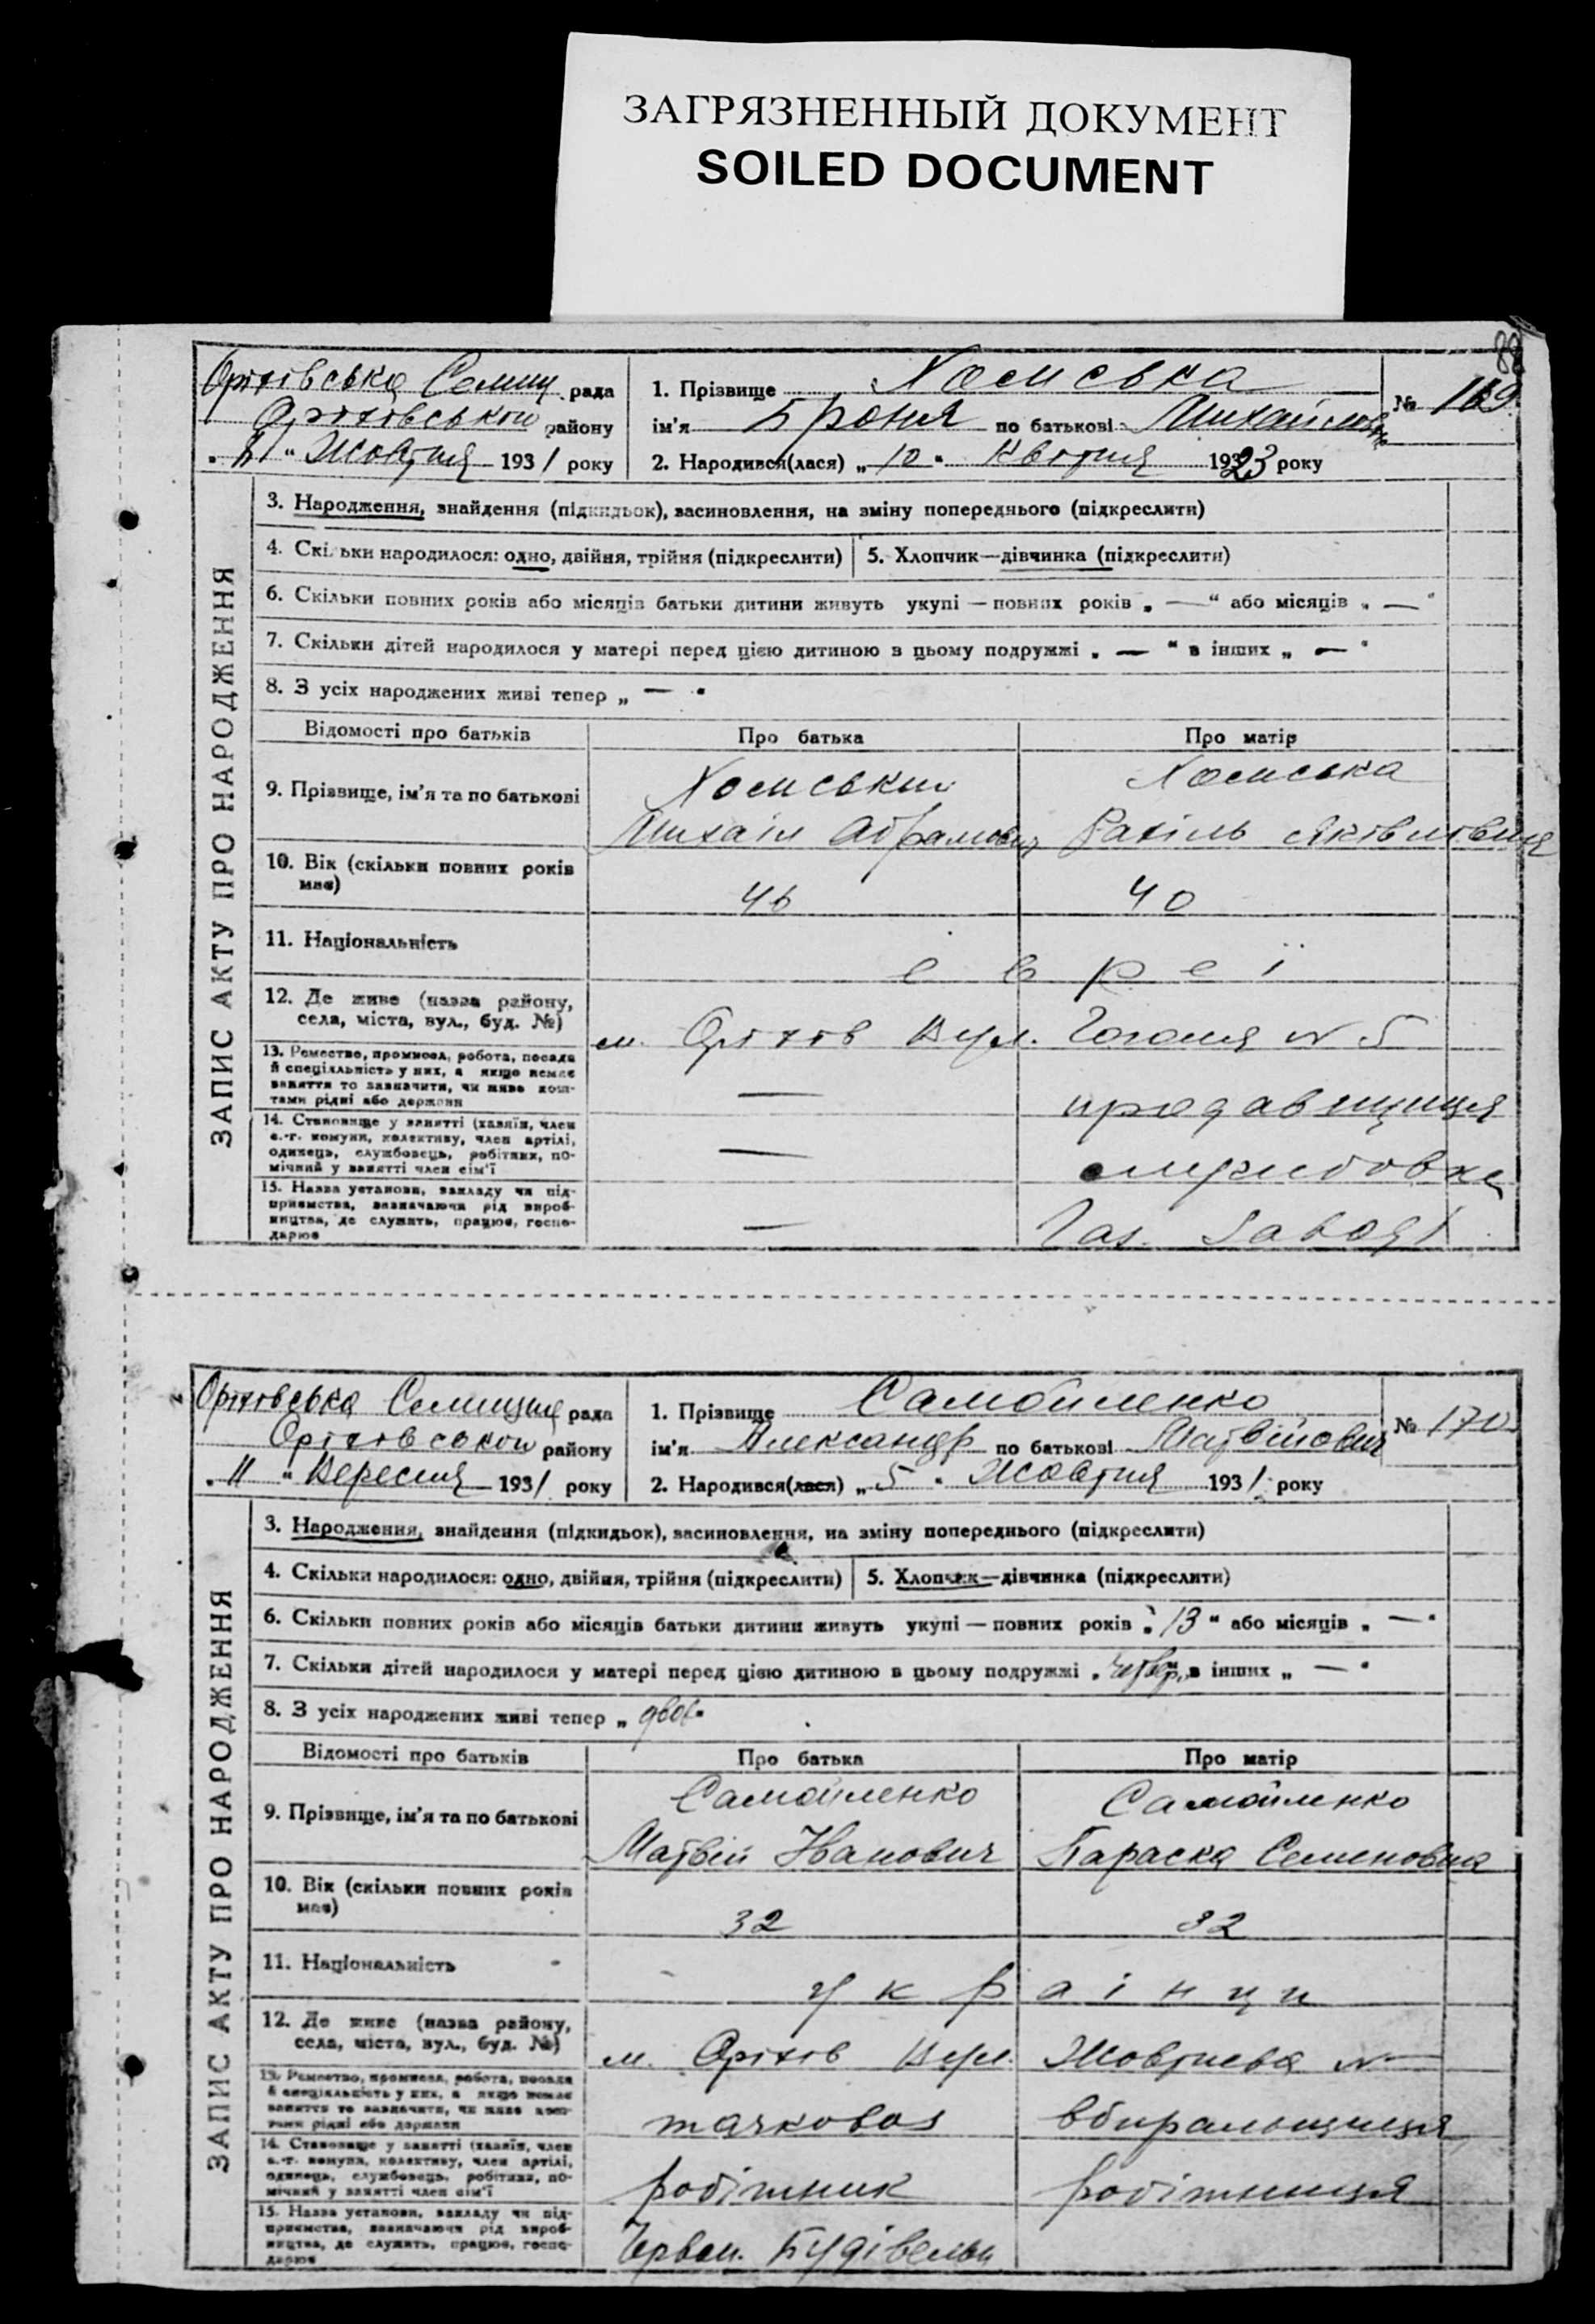 ЗАГРЯЗНЕННЫЙ ДОКУМЕНТ
SOILED DOCUMENT
88
Оріхівська Селищ рада
Оріхівськом району
Жовтня 1931 року
1. Прізвище Хомська
ім'я Броня по батькові Михайлов
2. Народився(лася) „10" Квітня 1923 року
№ 169
ЗАПИС АКТУ ПРО НАРОДЖЕННЯ
3. Народження, знайдення (підкидьок), васиновлення, на зміну попереднього (підкреслити)
4. Скільки народилося: одно, двійня, трійня (підкреслити) 5. Хлопчик—дівчинка (підкреслити)
6. Скільки повних років або місяців батьки дитини живуть укупі — повних років „ — " або місяців „ — "
7. Скільки дітей народилося у матері перед цією дитиною в цьому подружжі „ — " в інших „ — "
8. З усіх народжених живі тепер „ — "
Відомості про батьків Про батька Про матір
9. Прізвище, ім'я та по батькові Хомський Хомська
Михаіл Абрамович Рахіль Яківлівна
10. Вік (скільки повних років має) 46 40
11. Національність евреї
12. Де живе (назва району, села, міста, вул., буд. №) м. Оріхів Вул. Гоголя № 5
13. Ремество, промисел, робота, посада й спеціяльність у них, а якщо немає заняття то зазначити, чи живе коштами рідні або держави — продавщиця
14. Становище у занятті (хазяїн, член с.-г. комуни, колективу, член артілі, одинець, службовець, робітник, помічний у занятті член сім'ї —
15. Назва установи, закладу чи підприємства, зазначаючи рід виробництва, де служить, працює, господарює —
Оріхівська Селищна рада
Оріхівськом району
„11" Вересня 1931 року
1. Прізвище Самойленко
ім'я Александр по батькові Матвійович
2. Народився(лася) „5" Жовтня 1931 року
№ 170
ЗАПИС АКТУ ПРО НАРОДЖЕННЯ
3. Народження, знайдення (підкидьок), васиновлення, на зміну попереднього (підкреслити)
4. Скільки народилося: одно, двійня, трійня (підкреслити) 5. Хлопчик—дівчинка (підкреслити)
6. Скільки повних років або місяців батьки дитини живуть укупі — повних років „13" або місяців „ — "
7. Скільки дітей народилося у матері перед цією дитиною в цьому подружжі „ в інших „ — "
8. З усіх народжених живі тепер „двоє"
Відомості про батьків Про батька Про матір
9. Прізвище, ім'я та по батькові Самойленко Самойленко
Матвій Иванович Параска Семеновна
10. Вік (скільки повних років має) 32 32
11. Національність украінци
12. Де живе (назва району, села, міста, вул., буд. №) м. Оріхів Вул. Жовтнева № —
13. Ремество, промисел, робота, посада й спеціяльність у них, а якщо немає заняття то зазначити, чи живе коштами рідні або держави тачковоз вбиральщиця
14. Становище у занятті (хазяїн, член с.-г. комуни, колективу, член артілі, одинець, службовець, робітник, помічний у занятті член сім'ї робітник робітниця
15. Назва установи, закладу чи підприємства, зазначаючи рід виробництва, де служить, працює, господарює Червон. Будівельн